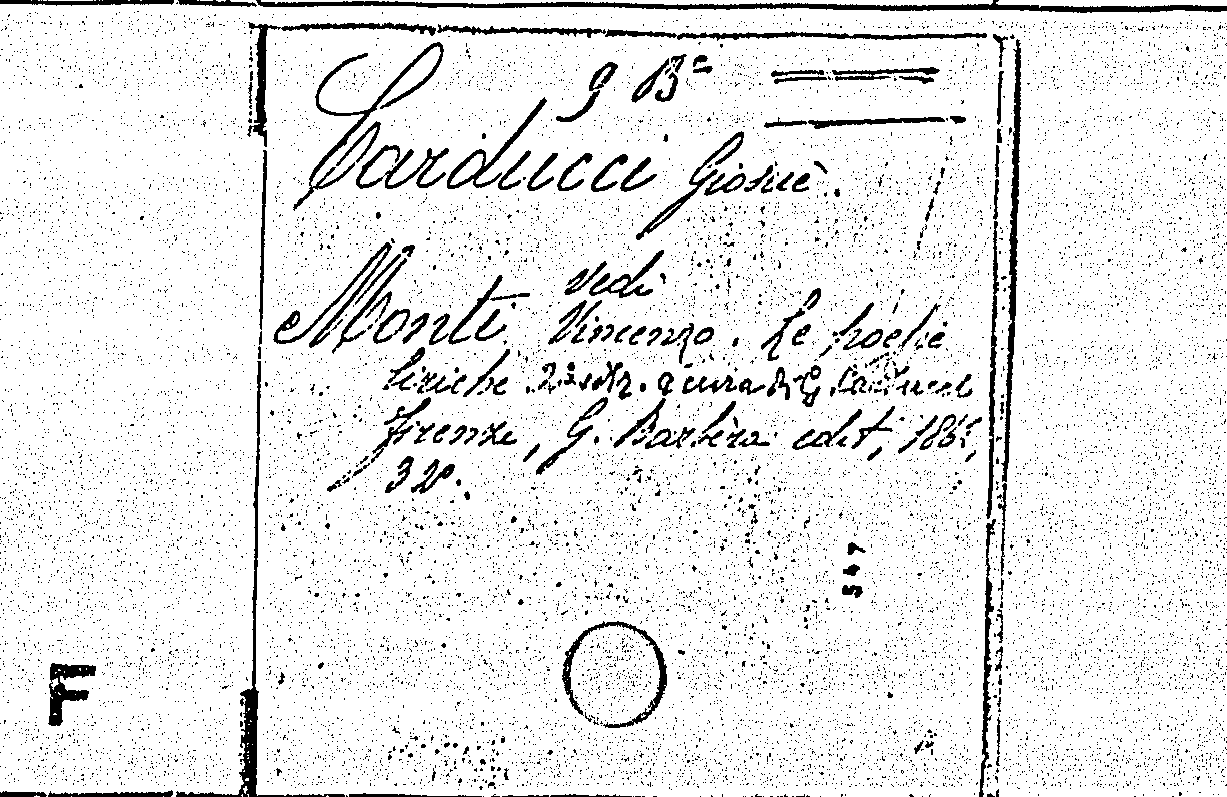 9 Bª
Carducci Giosuè.
vedi
Monti Vincenzo. Le poesie
liriche 2ª ediz. a cura di G. Carducci
Firenze, G. Barbèra edit,
32º.
547
F